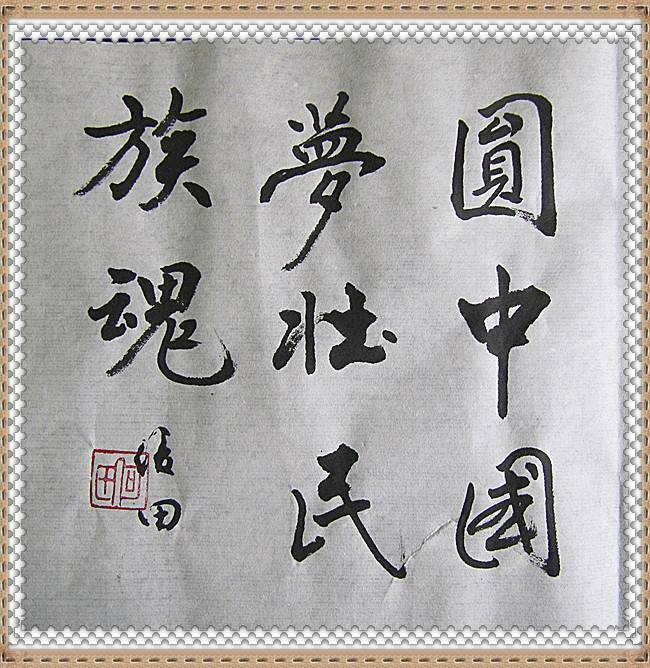 圓中國
夢壯民
族魂
田